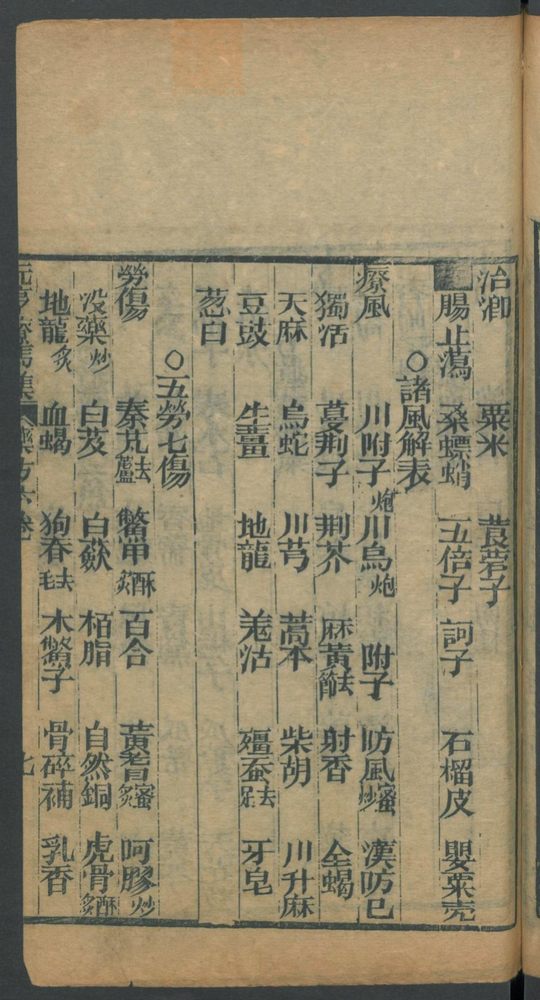 治瀉 粟米 莨菪子
腸止瀉 桑螵蛸 五倍子 訶子 石榴皮 嬰粟壳
○諸風解表
療風 川附子炮 川烏炮 附子 防風蜜炒 漢防巳
獨活 蔓荆子 荆芥 麻黃去節 射香 全蝎
天麻 烏蛇 川芎 蒿本 柴胡 川升麻
豆豉 生薑 地龍 羗活 殭蚕去足 牙皂
葱白
○五勞七傷
勞傷 秦艽去蘆 鱉甲酥炙 百合 黃蓍蜜炙 阿膠炒
没藥炒 白芨 白蘞 栢脂 自然銅 虎骨酥炙
地龍炙 血蝎 狗脊去毛 木鱉子 骨碎補 乳香
療馬集 藥方六卷 七